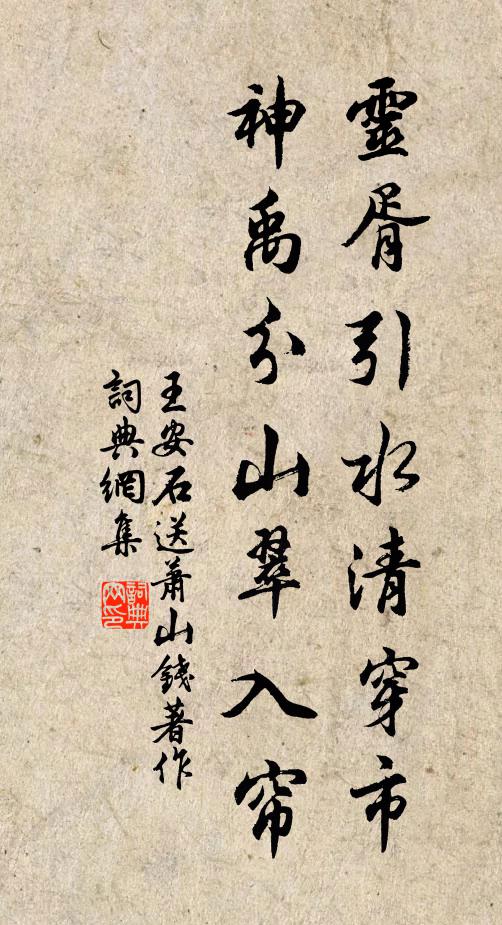 靈胥引水清穿市
神禹分山翠入帘
王安石送蕭山錢著作
詞典網集
詞典
网印